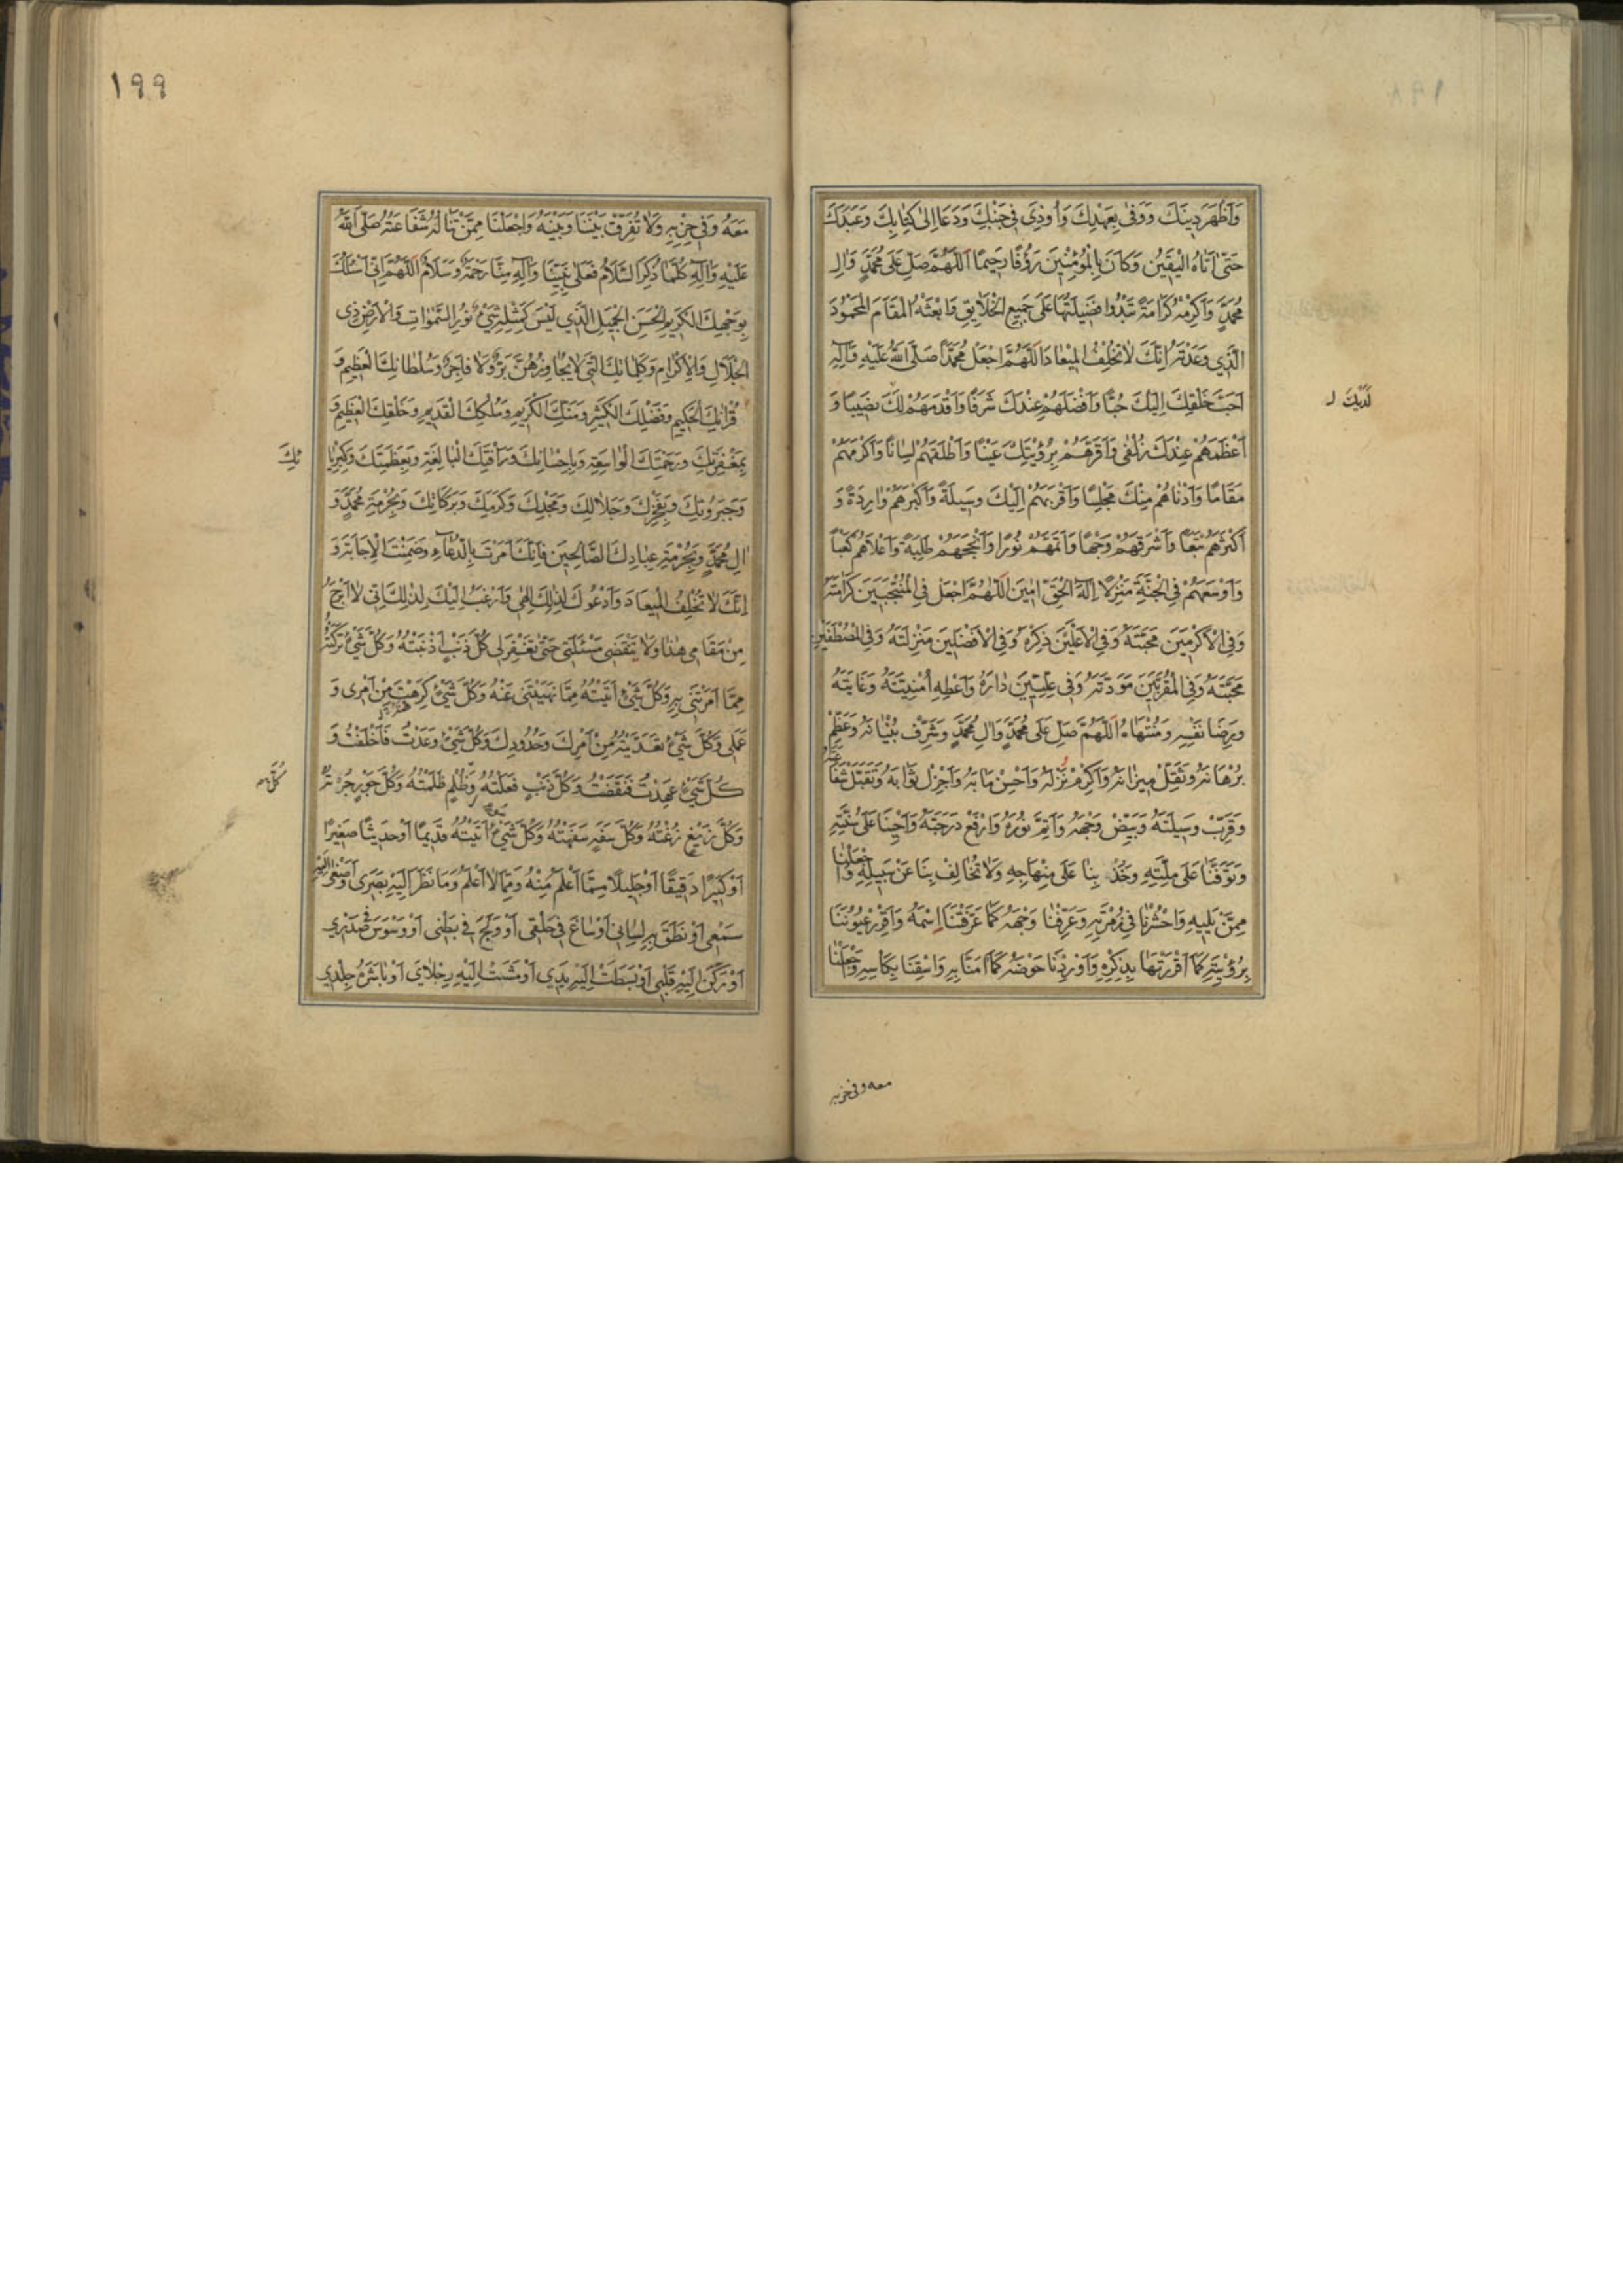 وَاَظْهَرَ دِينَكَ وَوَفىٰ بِعَهْدِكَ وَاُوذِىَ فِي جَنْبِكَ وَدَعَا اِلىٰ كِتٰابِكَ وَعَبَدَكَ
حَتّىٰ اَتَاهُ الْيَقِينُ وَكَانَ بِالْمُؤْمِنِينَ رَؤُفًا رَحِيمًا اَللّٰهُمَّ صَلِّ عَلىٰ مُحَمَّدٍ وَاٰلِ
مُحَمَّدٍ وَاَكْرِمْهُ كَرَامَةً تَبْدُوا فَضِيلَتُهٰا عَلىٰ جَمِيعِ الْخَلَايِقِ وَابْعَثْهُ الْمَقَامَ الْمَحْمُودَ
الَّذِي وَعَدْتَهُ اِنَّكَ لَاتُخْلِفُ الْمِيعَادَ اَللّٰهُمَّ اجْعَلْ مُحَمَّدًا صَلَّى اللّٰهُ عَلَيْهِ وَاٰلِهِ
اَحَبَّ خَلْقِكَ اِلَيْكَ حُبًّا وَاَفْضَلَهُمْ عِنْدَكَ شَرَفًا وَاَقْدَمَهُمْ لَكَ نَصِيبًا وَ
لَدَيْكَ
اَعْظَمَهُمْ عِنْدَكَ زُلْفىٰ وَاَقَرَّهُمْ بِرُؤْيَتِكَ عَيْنًا وَاَطْلَقَهُمْ لِسَانًا وَاَكْرَمَهُمْ
مَقَامًا وَاَدْنَاهُمْ مِنْكَ مَجْلِسًا وَاَقْرَبَهُمْ اِلَيْكَ وَسِيلَةً وَاَكْبَرَهُمْ وَارِدَةً وَ
اَكْثَرَهُمْ تَبَعًا وَاَشْرَقَهُمْ وَجْهًا وَاَتَمَّهُمْ نُورًا وَاَنْجَحَهُمْ طَلِبَةً وَاَعْلَاهُمْ كَعْبًا
وَاَوْسَعَهُمْ فِي الْجَنَّةِ مَنْزِلًا اِلٰهَ الْحَقِّ اٰمِينَ اَللّٰهُمَّ اجْعَلْ فِي الْمُنْتَجَبِينَ كَرَامَتَهُ
وَفِي الْاَكْرَمِينَ مَحَبَّتَهُ وَفِي الْاَعْلَيْنَ ذِكْرَهُ وَفِي الْاَفْضَلِينَ مَنْزِلَتَهُ وَفِي الْمُصْطَفَيْنَ
مَحَبَّتَهُ وَفِي الْمُقَرَّبِينَ مَوَدَّتَهُ وَفِي عِلِّيِّينَ دَارَهُ وَاَعْطِهِ اُمْنِيَّتَهُ وَغَايَتَهُ
وَرِضَا نَفْسِهِ وَمُنْتَهَاهُ اَللّٰهُمَّ صَلِّ عَلىٰ مُحَمَّدٍ وَاٰلِ مُحَمَّدٍ وَشَرِّفْ بُنْيَانَهُ وَعَظِّمْ
بُرْهَانَهُ وَثَقِّلْ مِيزَانَهُ وَاَكْرِمْ نُزُلَهُ وَاَحْسِنْ مَاٰبَهُ وَاَجْزِلْ ثَوَابَهُ وَتَقَبَّلْ شَفَاعَتَهُ
وَقَرِّبْ وَسِيلَتَهُ وَبَيِّضْ وَجْهَهُ وَاَتِمَّ نُورَهُ وَارْفَعْ دَرَجَتَهُ وَاَحْيِنَا عَلىٰ سُنَّتِهِ
وَتَوَفَّنَا عَلىٰ مِلَّتِهِ وَخُذْ بِنَا عَلىٰ مِنْهَاجِهِ وَلَا تُخَالِفْ بِنَا عَنْ سَبِيلِهِ وَاجْعَلْنَا
مِمَّنْ يَلِيهِ وَاحْشُرْنَا فِي زُمْرَتِهِ وَعَرِّفْنَا وَجْهَهُ كَمَا عَرَّفْتَنَا اِسْمَهُ وَاَقْرِرْ عُيُونَنَا
بِرُؤْيَتِهِ كَمَا اَقْرَرْتَهَا بِذِكْرِهِ وَاَوْرِدْنَا حَوْضَهُ كَمَا اٰمَنَّا بِهِ وَاسْقِنَا بِكَاْسِهِ وَاجْعَلْنَا
معه وفى حزبه
١٩٩
مَعَهُ وَفِي حِزْبِهِ وَلَا تُفَرِّقْ بَيْنَنَا وَبَيْنَهُ وَاجْعَلْنَا مِمَّنْ تَنَالُهُ شَفَاعَتُهُ صَلَّى اللّٰهُ
عَلَيْهِ وَاٰلِهِ كُلَّمَا ذُكِرَ السَّلَامُ فَعَلىٰ نَبِيِّنَا وَاٰلِهِ مِنَّا رَحْمَةٌ وَسَلَامٌ اَللّٰهُمَّ اِنِّي اَسْئَلُكَ
بِوَجْهِكَ الْكَرِيمِ الْحَسَنِ الْجَمِيلِ الَّذِي لَيْسَ كَمِثْلِهِ شَيْءٌ نُورِ السَّمٰوَاتِ وَالْاَرْضِ ذِي
الْجَلَالِ وَالْاِكْرَامِ وَكَلِمَاتِكَ الَّتِي لَا يُجَاوِزُهُنَّ بَرٌّ وَلَا فَاجِرٌ وَسُلْطَانِكَ الْعَظِيمِ وَ
قُرْاٰنِكَ الْحَكِيمِ وَفَضْلِكَ الْكَثِيرِ وَمَنِّكَ الْكَرِيمِ وَمُلْكِكَ الْقَدِيمِ وَخَلْقِكَ الْعَظِيمِ وَ
بِمَغْفِرَتِكَ وَرَحْمَتِكَ الْوَاسِعَةِ وَبِاِحْسَانِكَ وَرَاْفَتِكَ الْبَالِغَةِ وَبِعَظَمَتِكَ وَكِبْرِيَا
ئِكَ
وَجَبَرُوتِكَ وَبِفَخْرِكَ وَجَلَالِكَ وَمَجْدِكَ وَكَرَمِكَ وَبَرَكَاتِكَ وَبِحُرْمَةِ مُحَمَّدٍ وَ
اٰلِ مُحَمَّدٍ وَبِحُرْمَةِ عِبَادِكَ الصَّالِحِينَ فَاِنَّكَ اَمَرْتَ بِالدُّعَاءِ وَضَمِنْتَ الْاِجَابَةَ وَ
اِنَّكَ لَا تُخْلِفُ الْمِيعَادَ وَاَدْعُوكَ لِذٰلِكَ اِلٰهِي وَاَرْغَبُ اِلَيْكَ لِذٰلِكَ اِنِّي لَا اَبْرَحُ
مِنْ مَقَامِي هٰذَا وَلَا تَنْقَضِي مَسْئَلَتِي حَتّىٰ تَغْفِرَ لِي كُلَّ ذَنْبٍ اَذْنَبْتُهُ وَكُلَّ شَيْءٍ تَرَكْتُهُ
مِمَّا اَمَرْتَنِي بِهِ وَكُلَّ شَيْءٍ اَتَيْتُهُ مِمَّا نَهَيْتَنِي عَنْهُ وَكُلَّ شَيْءٍ كَرِهْتَ مِنْ اَمْرِي وَ
عَمَلِي وَكُلَّ شَيْءٍ تَعَدَّيْتُهُ مِنْ اَمْرِكَ وَحُدُودِكَ وَكُلَّ شَيْءٍ وَعَدْتُ فَاَخْلَفْتُ وَ
كُلَّ شَيْءٍ عَهِدْتُ فَنَقَضْتُ وَكُلَّ ذَنْبٍ فَعَلْتُهُ وَظُلْمٍ ظَلَمْتُهُ وَكُلَّ جَوْرٍ جُرْتُهُ
كُلَّ
وَكُلَّ زَيْغٍ زُغْتُهُ وَكُلَّ سَفَهٍ سَفِهْتُهُ وَكُلَّ شَيْءٍ اَتَيْتُهُ قَدِيمًا اَوْ حَدِيثًا صَغِيرًا
اَوْ كَبِيرًا دَقِيقًا اَوْ جَلِيلًا مِمَّا اَعْلَمُ مِنْهُ وَمِمَّا لَا اَعْلَمُ وَمَا نَظَرَ اِلَيْهِ بَصَرِي وَاَصْغىٰ اِلَيْهِ
سَمْعِي اَوْ نَطَقَ بِهِ لِسَانِي اَوْ سَاغَ فِي حَلْقِي اَوْ وَلَجَ فِي بَطْنِي اَوْ وَسْوَسَ فِي صَدْرِي
اَوْ رَكَنَ اِلَيْهِ قَلْبِي اَوْ بَسَطَتْ اِلَيْهِ يَدِي اَوْ مَشَتْ اِلَيْهِ رِجْلَايَ اَوْ بَاشَرَهُ جِلْدِي